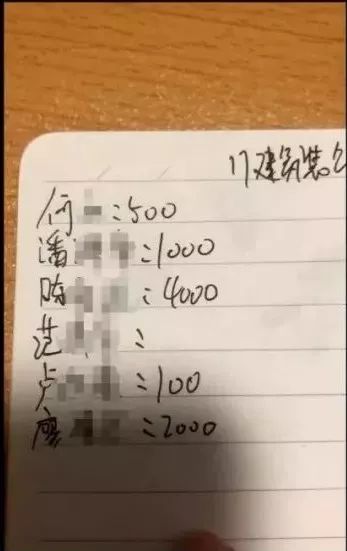 17建筑装
何 : 500
潘 : 1000
陈 : 4000
范 :
卢 : 100
廖 : 2000